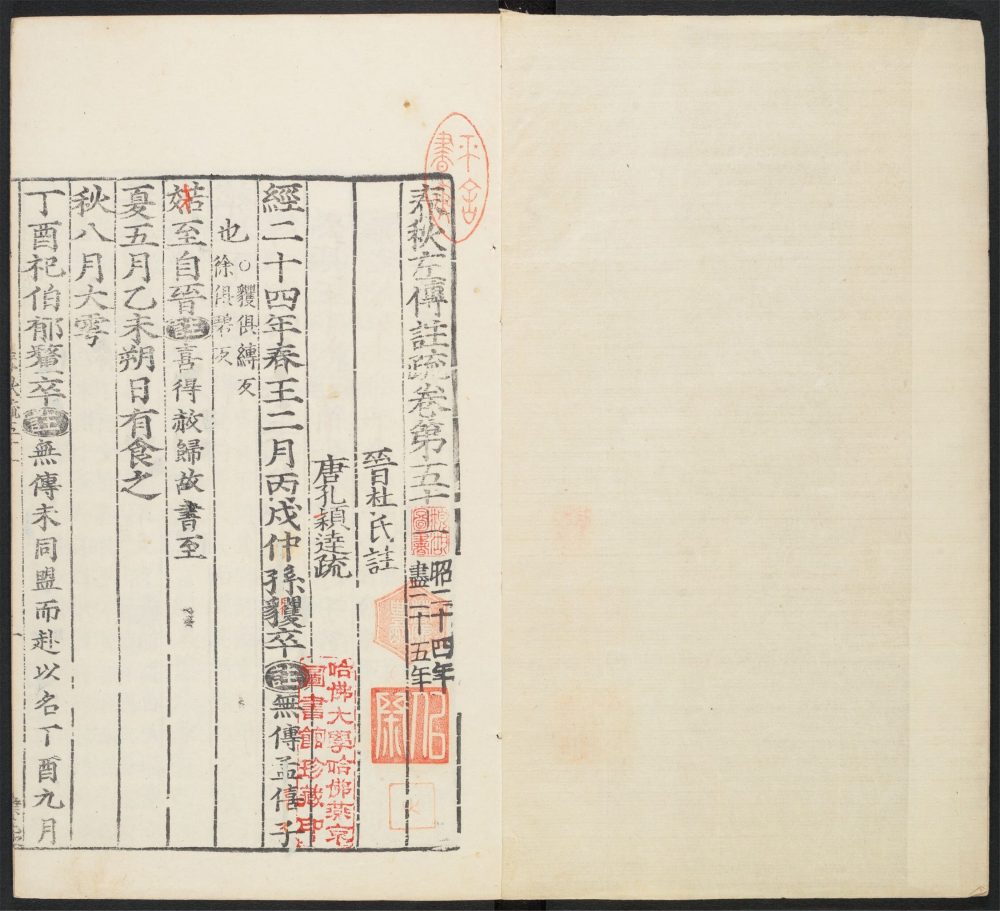 春秋左傳註疏卷第五十一 昭二十四年盡二十五年
晉杜氏註
唐孔穎達疏
經二十四年春王二月丙戌仲孫貜卒註無傳孟僖子
也○貜俱縛反徐俱碧反
婼至自晉註喜得赦歸故書至
夏五月乙未朔日有食之
秋八月大雩
丁酉杞伯郁釐卒註無傳未同盟而赴以名丁酉九月
哈佛大學哈佛燕京
圖書館珍藏印